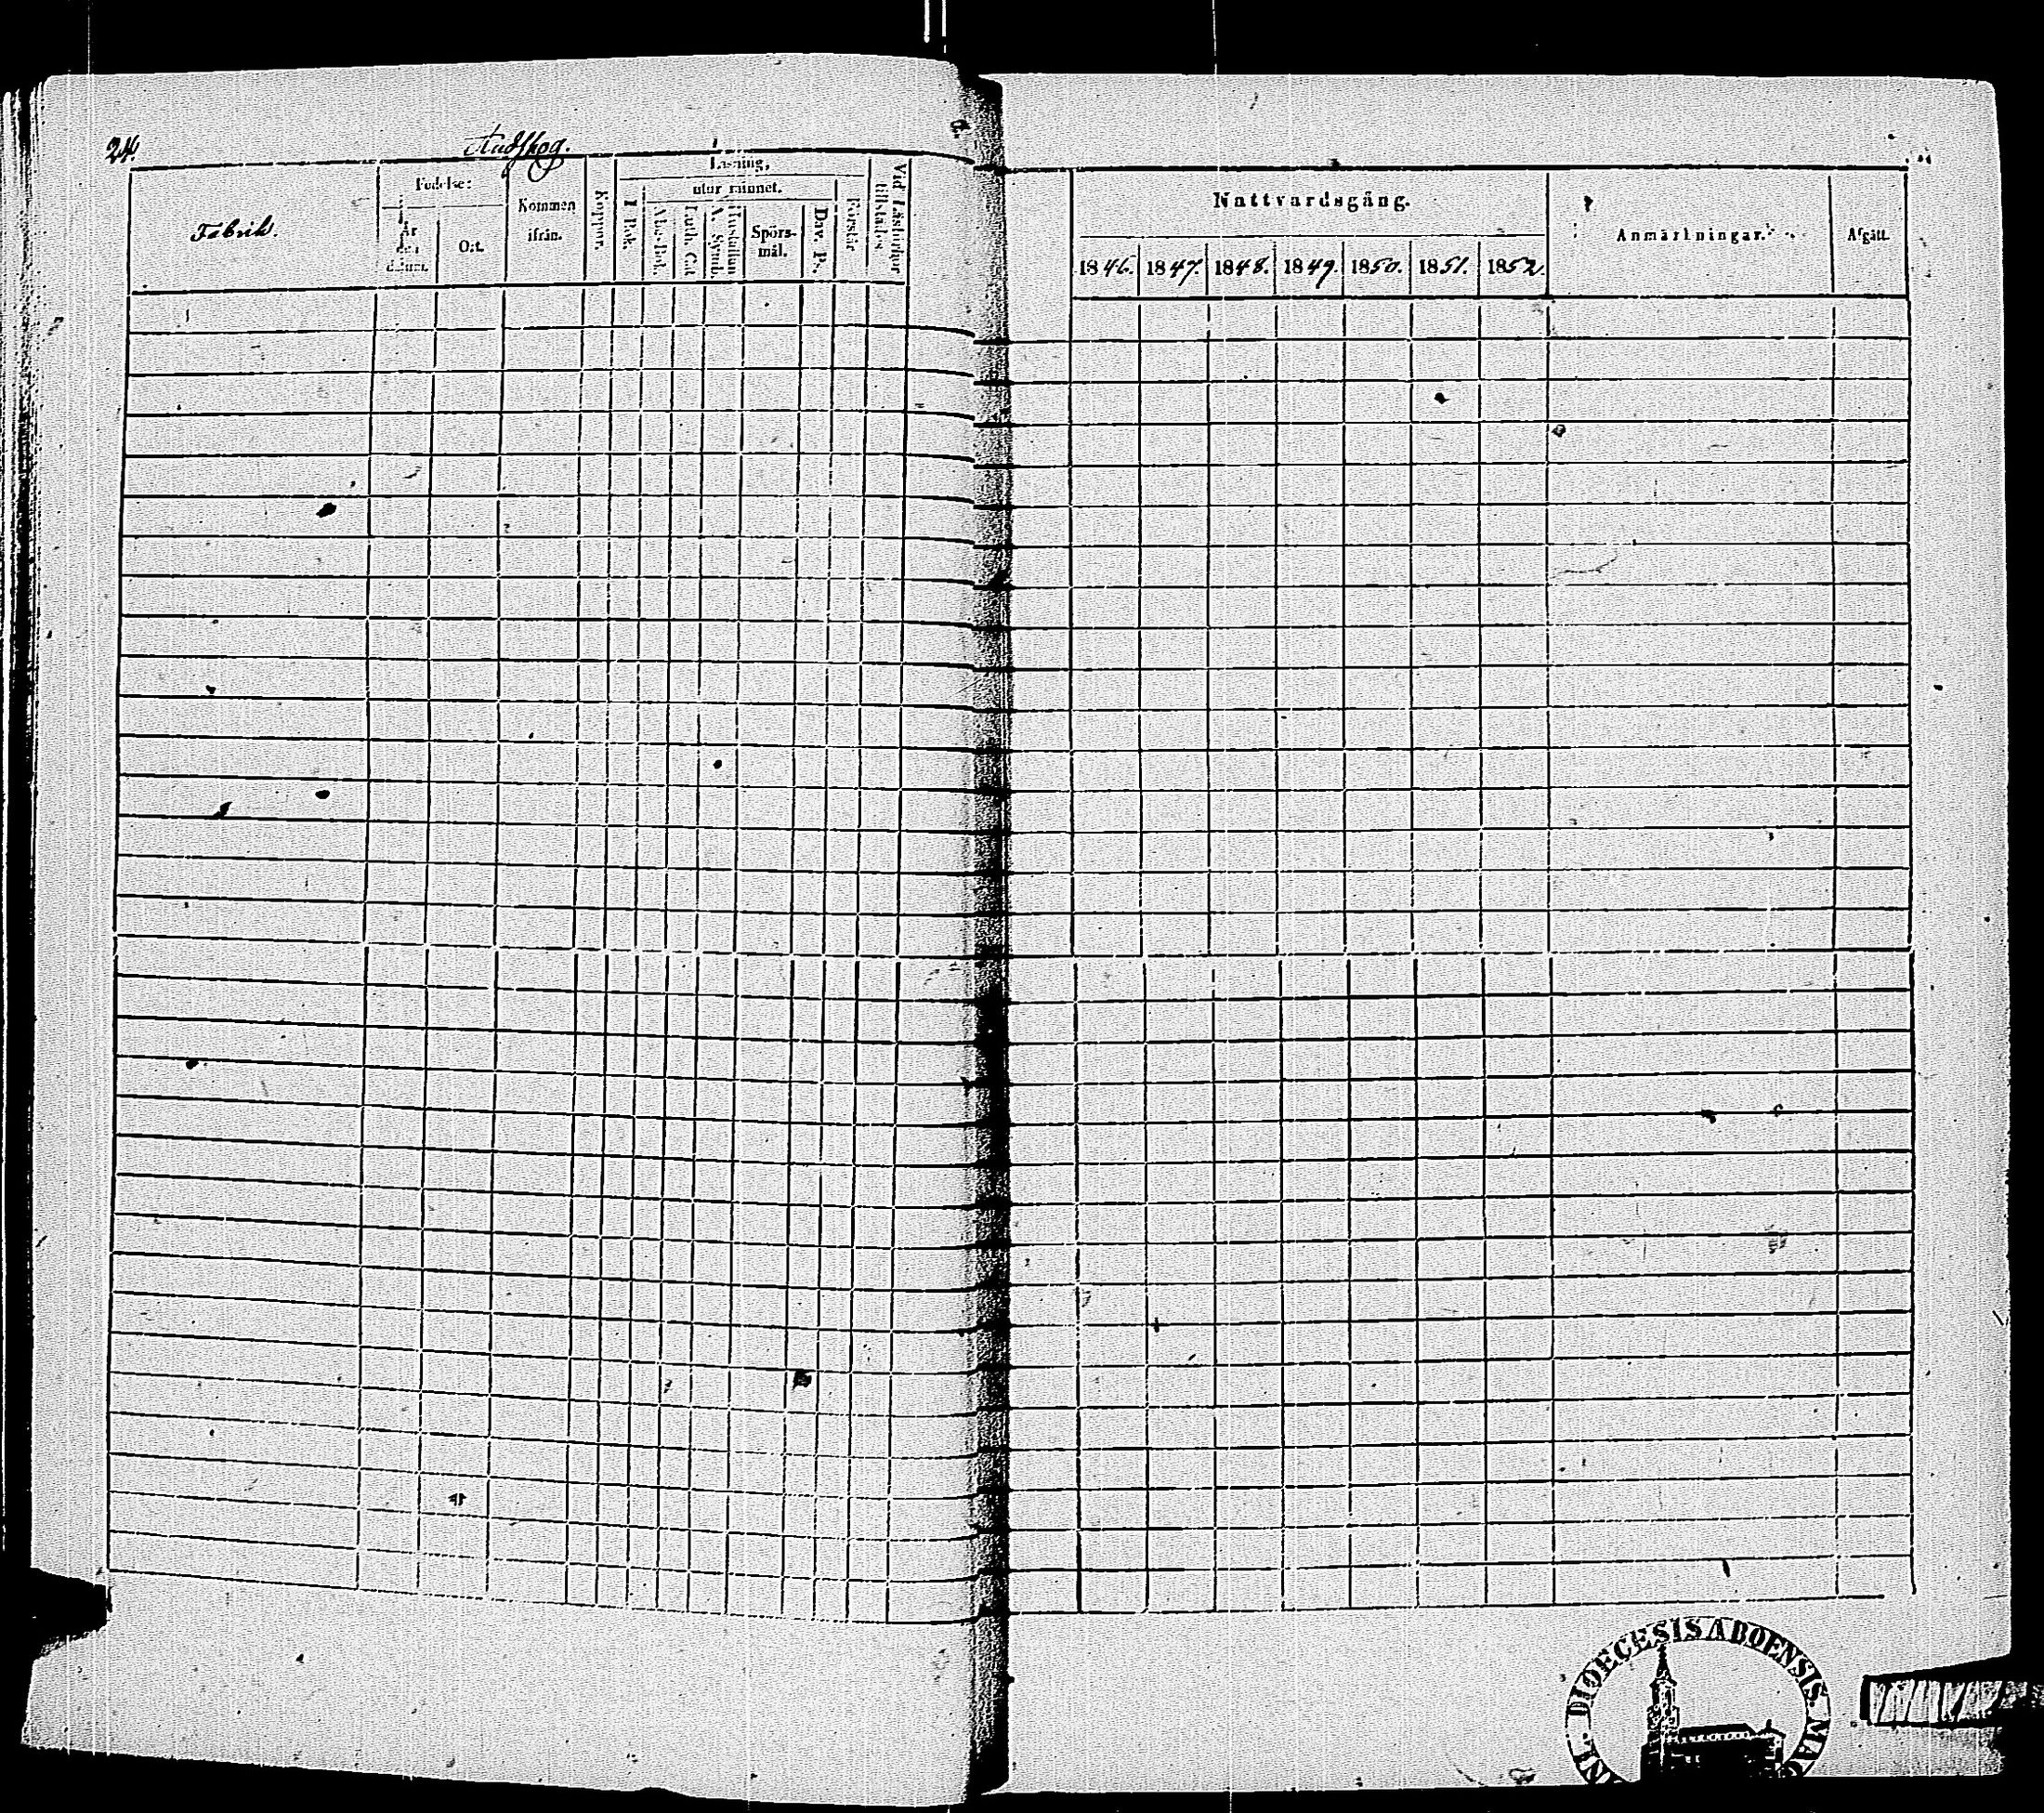 24.
Fabrik.
Födelse:
År och datum.
Ort.
Kommen ifrån.
Koppor.
Läsning,
I Bok.
utur minnet.
Abc-Bok.
Luth. Cat.
Hustaflan A. Symb.
Spörs-mål.
Dav. P.
Förstår
Vid Läsförhör tillstädes
Nattvardsgång.
1846.
1847.
1848.
1849.
1850.
1851.
1852.
Anmärkningar.
Afgått.
DIOECESIS ABOENSIS